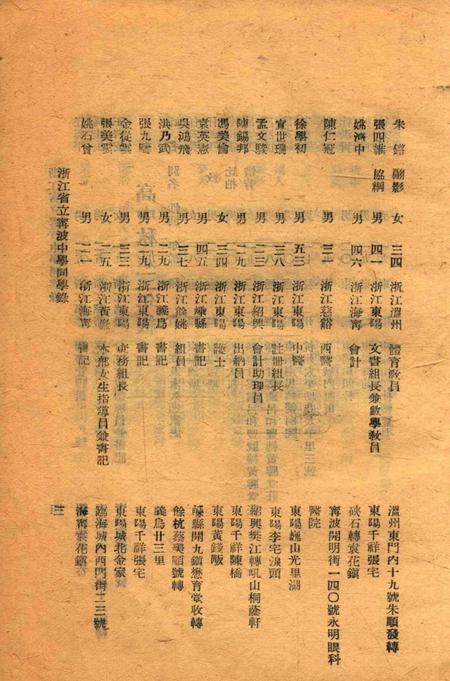 朱鏘 顧影 女 三四 浙江溫州 體育敎員 溫州東門內十九號朱順發轉
張四維 協綱 男 四一 浙江東陽 文書組長兼數學敎員 東陽千祥張宅
姚濟中 男 四六 浙江海寧 會計 硤石轉袁花鎭
陳仁冠 男 三一 浙江慈谿 西醫 寧波開明街一四〇號永明眼科
醫院
徐學初 男 五三 浙江東陽 中醫 東陽巍山光里湖
男 三八 浙江東陽 註冊組長 東陽李宅湶頭
孟文駿 男 二三 浙江紹興 會計助理員 紹興樊江轉吼山桐蔭軒
陳錫邦 男 二九 浙江東陽 出納員 東陽千祥陳橋
馮美倫 女 三四 浙江東陽 護士 東陽黃錢畈
袁英憲 男 四五 浙江嵊縣 書記 嵊縣開九鎭懋育堂收轉
吳鴻飛 男 三七 浙江餘姚 組員 餘杭蔡美順號轉
洪乃武 男 二九 浙江義烏 書記 義烏廿三里
張九 男 二九 浙江東陽 書記 東陽千祥張宅
金從 男 三三 浙江東陽 庶務組長 東陽城北金家
張美雲 女 二五 浙江黃巖 本部女生指導員兼書記 臨海城內西門街二三號
姚石曾 男 二二 浙江海寧 書記 海寧袁花鎭
浙江省立寧波中學同學錄 三